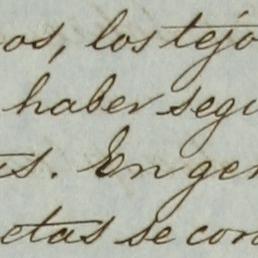 os, los tejo
haber segu
as. En gen
etas se con